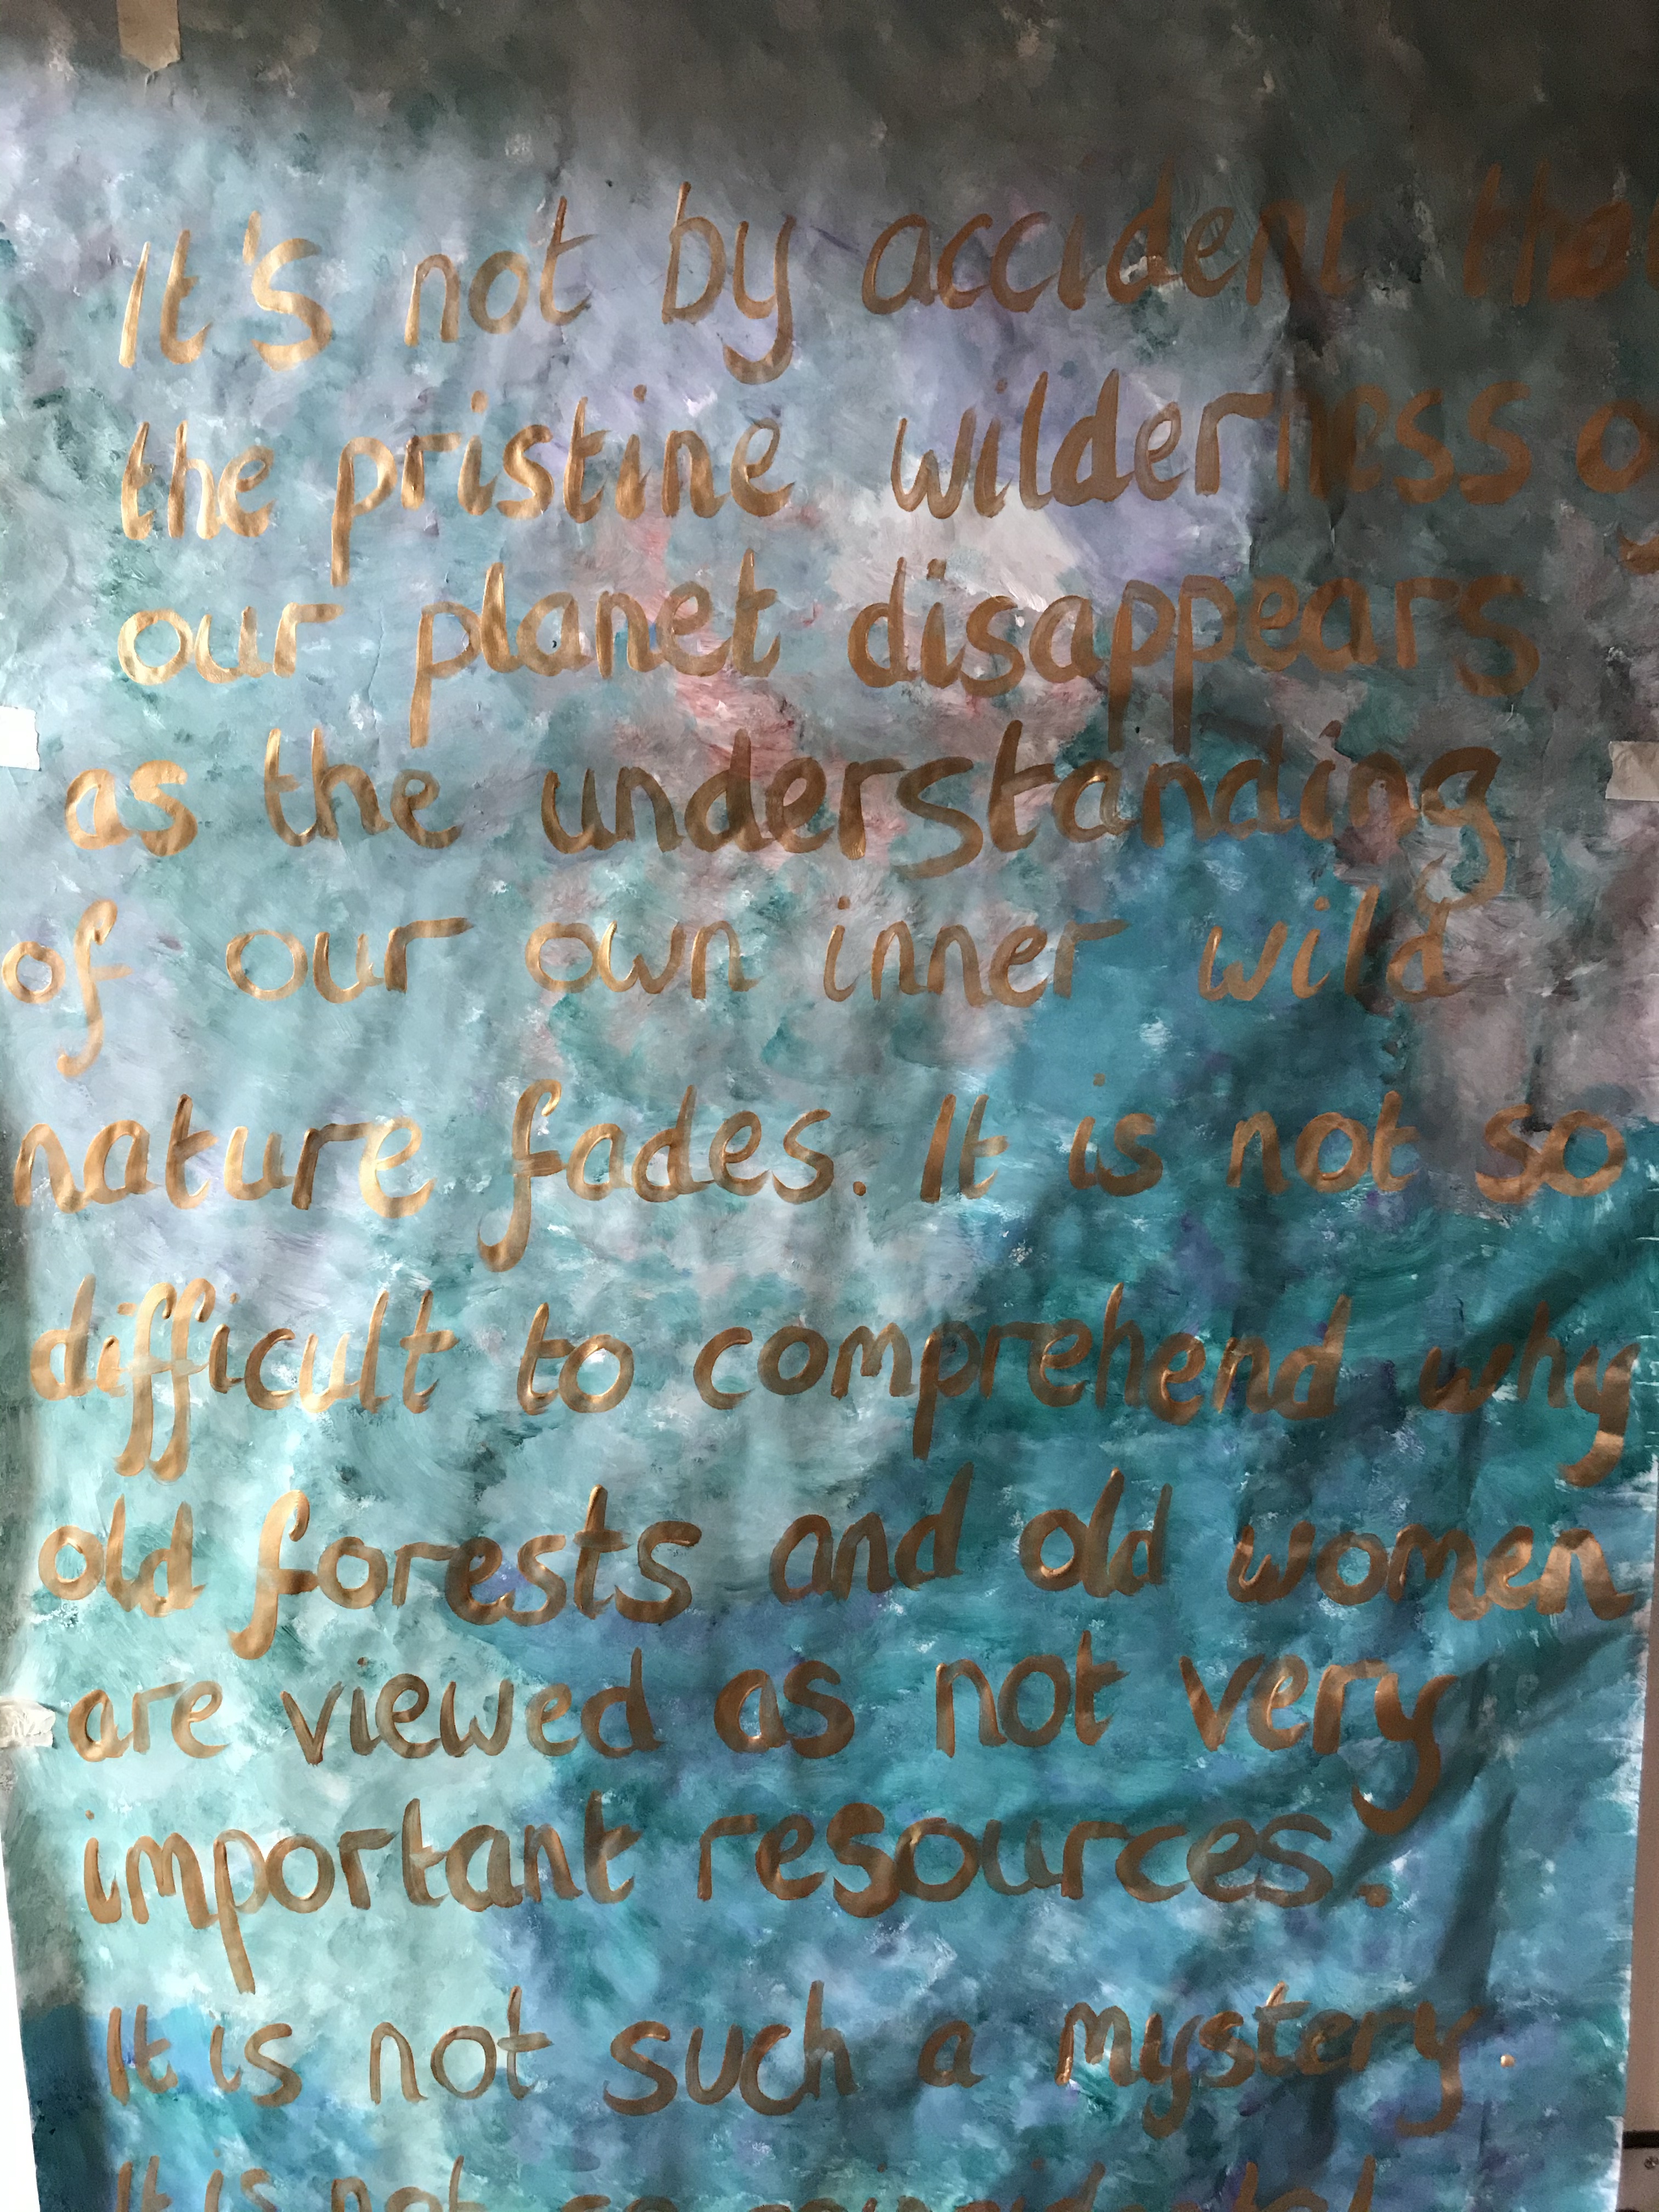 It's not by accident that
the pristine wilderness of
our planet disappears
as the understanding
of our own inner wild
nature fades. It is not so
difficult to comprehend why
old forests and old women
are viewed as not very
important resources.
It is not such a mystery.
It is not so coincidental